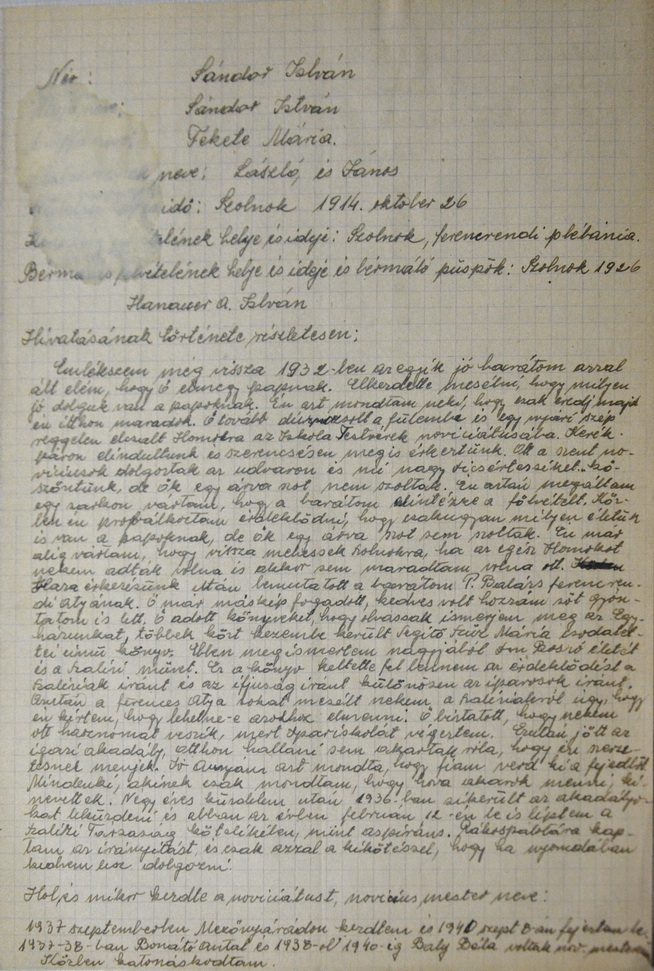 Név: Sándor István
Sándor István
Fekete Mária.
neve: László, és János
idő: Szolnok 1914. október 26
helye és ideje: Szolnok, ferencrendi plébánia.
Bérma felvételének helye és ideje és bérmáló püspök: Szolnok 1926
Hanauer A. István
Hivatásának története részletesen:
Emlékszem még vissza 1932-ben az egyik jó barátom azzal
állt elém, hogy ő elmegy papnak. Elkezdette mesélni, hogy milyen
jó dolguk van a papoknak. Én azt mondtam neki, hogy csak eredj majd
én itthon maradok. Ő tovább a fülembe is egy nyári szép
reggelen Homokra az Iskola Testvérek noviciátusába. Kerék-
páron elindultunk és szerencsésen meg is érkeztünk. Ott a szent no-
viciusok dolgoztak az udvaron és mi nagy Kö-
szöntünk, de ők egy árva szót nem szóltak. Én aztán megálltam
egy sarkon vártam, hogy a barátom elintézze a fölvételt. Köz-
ben én próbálkoztam érdeklődni, hogy csakugyan milyen életük
is van a papoknak, de ők egy árva szót sem szóltak. Én már
alig vártam, hogy vissza mehessek Szolnokra, ha az egész Homokot
nekem adták volna is akkor sem maradtam volna ott.
Haza érkezésünk után bemutatott a barátom P. Balázs ferencren-
di Atyának. Ő már máskép fogadott, kedves volt hozzám sőt gyón-
tatóm is lett. Ő adott könyveket, hogy olvassak ismerjem meg az Egy-
házunkat, többek közt kezembe került Segítő Szűz Mária csodatet-
tei című könyv. Ebben megismertem nagyjából Don Boszkó életét
és a szalézi művet. Ez a könyv keltette fel bennem az érdeklődést a
szaléziak iránt és az ifjúság iránt különösen az iparosok iránt.
Azután a ferences Atya sokat mesélt nekem a szaléziakról úgy, hogy
én kértem, hogy lehetne-e azokhoz elmenni. Ő bíztatott, hogy nekem
ott hasznomat veszik, mert Ipariskolát végeztem. Ezután jött az
igazi akadály, otthon hallani sem akartak róla, hogy én szerze-
tesnek menjek. Jó Anyám azt mondta, hogy fiam verd ki a fejedből.
Mindenki, akinek csak mondtam, hogy hova akarok menni, ki-
nevettek. Négy éves küzdelem után 1936-ban sikerült az akadályo-
kat leküzdeni és abban az évben február 12-én be is léptem a
Szalézi Társaság kötelékébe, mint aspiráns. Rákospalotára kap-
tam az irányítást, és csak azzal a kikötéssel, hogy ha nyomdában
kedvem lesz dolgozni.
Hol, és mikor kezdte a noviciátust, novicius, mester neve:
1937 szeptemberben Mezőnyárádon kezdtem és 1940 szept 8-án fejeztem be.
1937-38-ban Bonátó Antal és 1938-ól 1940-ig Bály Béla voltak nov. mesterem
Közben katonáskodtam.